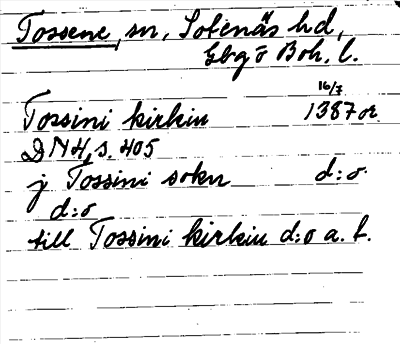 Tossene, sn, Sotenäs hd,
Gbg o Boh. l.
Tossini kirkiu 16/7 1387 or.
DN 4, s. 405
j Tossini sokn d:o
d:o
till Tossini kirkiu d:o a. st.